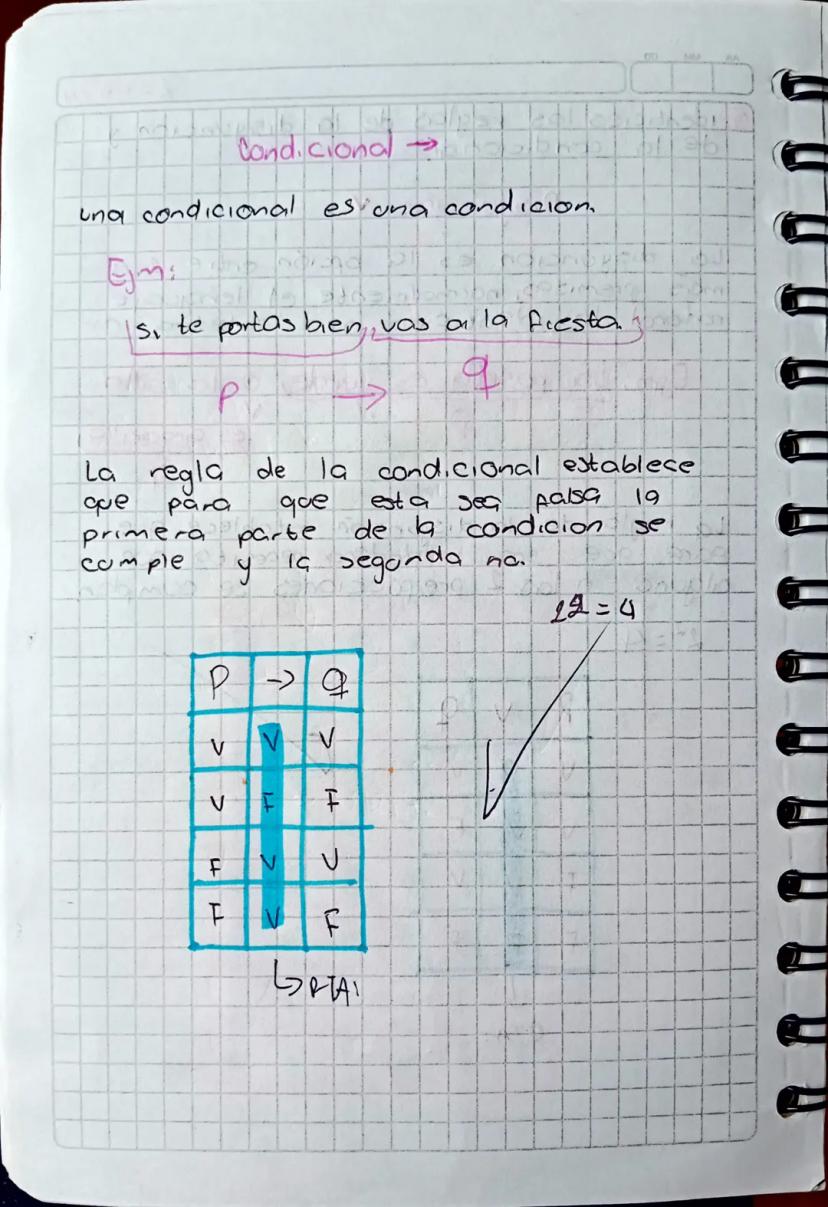 Condicional →
una condicional es una condicion.
Ejm:
Si te portas bien, vas a la fiesta.
P → q
La regla de la condicional establece
que para que esta sea falsa la
primera parte de la condicion se
cumple y la segunda no.
2² = 4
P → q
V V V
V F F
F V V
F V F
↳ RTA